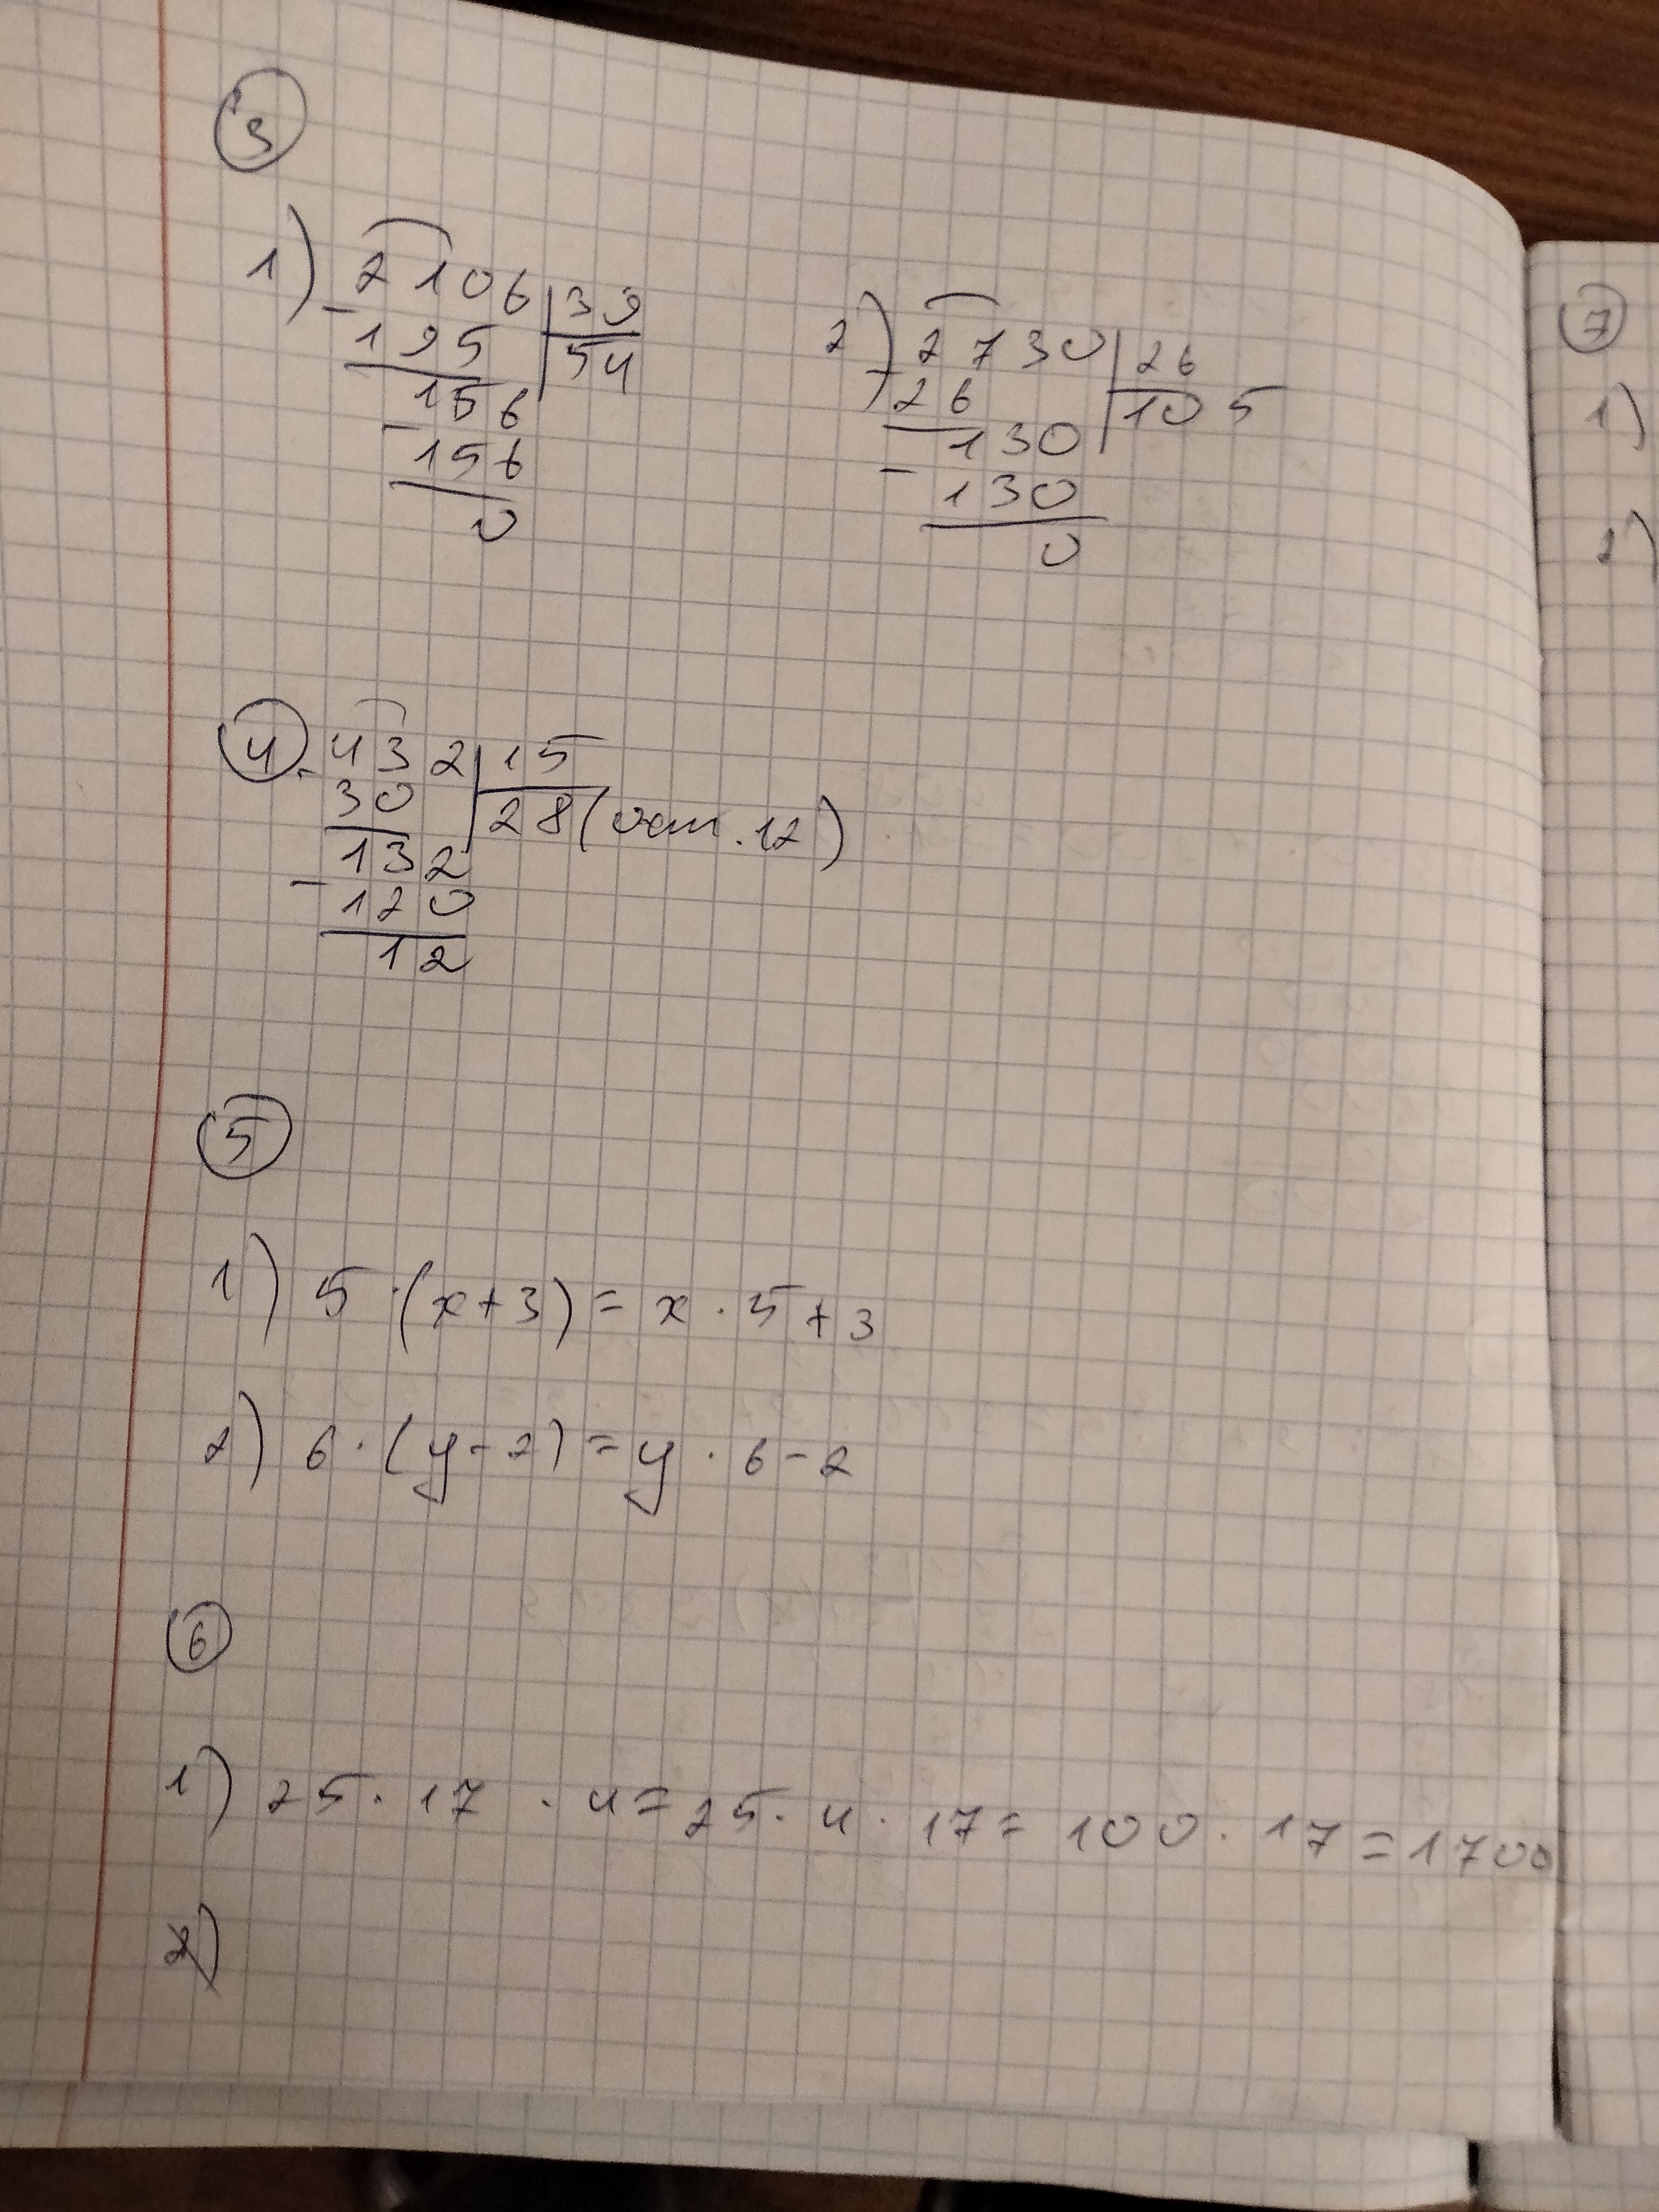 3
1) 2106 | 39
- 195 | 54
156
- 156
0
2) 2730 | 26
- 26 | 105
130
- 130
0
4 - 432 | 15
30 | 28 (ост. 12)
132
- 120
12
5
1) 5 · (x+3) = x · 5 + 3
2) 6 · (y - 2) = y · 6 - 2
6
1) 25 · 17 · 4 = 25 · 4 · 17 = 100 · 17 = 1700
2)
7
1)
2)